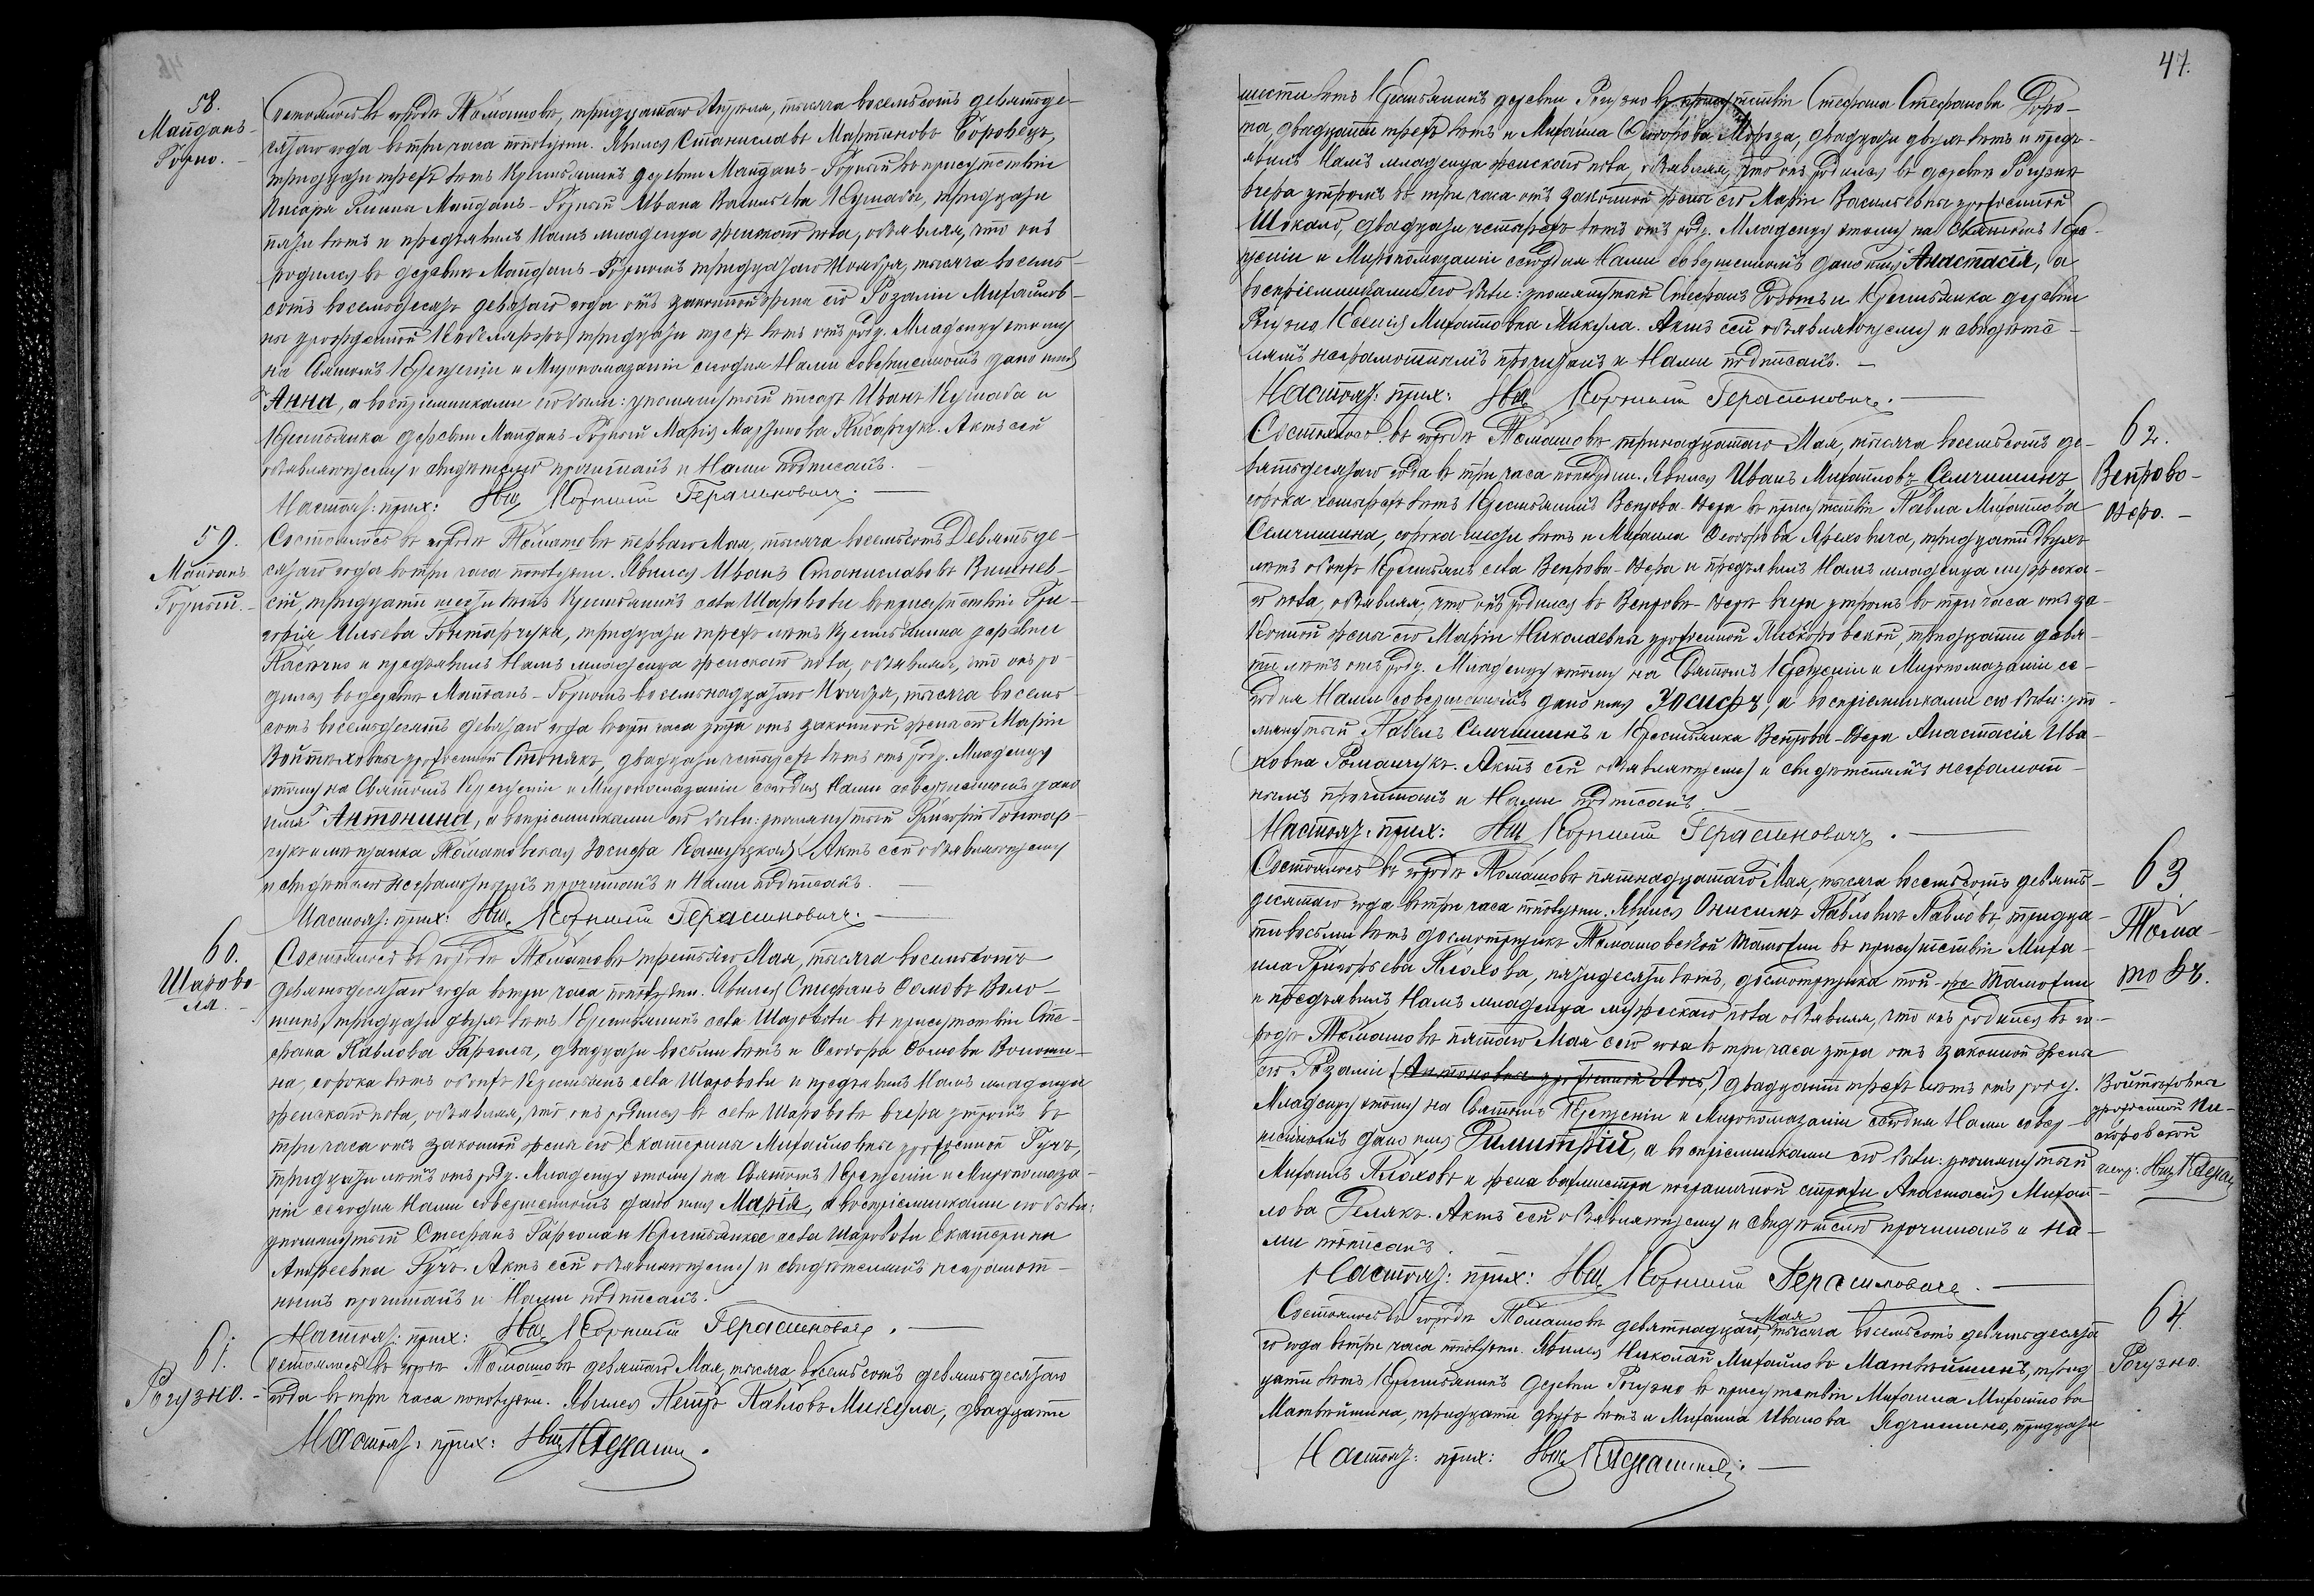 58.
Майданъ-
Горно. -
Состоялось въ городѣ Томашовѣ, тридцатаго Апрѣля, тысяча восемьсотъ девятьде-
сятаго года въ три часа пополудни. Явился Станиславъ Мартиновъ Боровецъ,
тридцати трехъ лѣтъ крестьянинъ деревни Майданъ-Горный въ присутствіи
писаря Гмины Майданъ-Горный Ивана Васильева Кушабы, тридцати
пяти лѣтъ и предъявилъ Намъ младенца женскаго пола, объявляя, что онъ
родился въ деревнѣ Майданъ-Горномъ тридцатаго Ноября, тысяча восемь-
сотъ восемьдесятъ девятаго года отъ законной жены его Розаліи Михайлов-
ны урожденной тридцати трехъ лѣтъ отъ роду. Младенцу этому
на Святомъ Крещеніи и Мѵропомазаніи сегодня Нами совершенномъ дано имя
Анна, а воспріемниками его были: упомянутый писарь Иванъ Кушаба и
Крестьянка деревни Майданъ-Горный Марія Мартинова Писарчукъ. Актъ сей
объявляющему и свидѣтелю прочитанъ и Нами подписанъ. —
Настоят: прих: Свщ Корнилій Герасимовичъ. —
59.
Майданъ
Горный. -
Состоялось въ городѣ Томашовѣ перваго Мая, тысяча восемьсотъ Девятьде-
сятаго года въ три часа пополудни. Явился Иванъ Станиславовъ Вишнев-
скій, тридцати шести лѣтъ крестьянинъ села Шароволи въ присутствіи Гри-
горія Ильева Гонтарчука, тридцати трехъ лѣтъ крестьянина деревни
Пасѣчно и предъявилъ Намъ младенца женскаго пола, объявляя, что онъ ро-
дился въ деревнѣ Майданъ-Горномъ восемьнадцатаго Ноября, тысяча восемь-
сотъ восемьдесятъ девятаго года въ три часа утра отъ законной жены его Маріи
Войтѣховны урожденной Стопякъ, двадцати четырехъ лѣтъ отъ роду. Младенцу
этому на Святомъ Крещеніи и Мѵропомазаніи сегодня Нами совершенномъ дано
имя Антонина, а воспріемниками его были: упомянутый Григорій Гонтар-
чукъ и мѣщанка Томашовская Іосифа Актъ сей объявляющему
и свидѣтелю неграмотнымъ прочитанъ и Нами подписанъ. —
Настоят: прих: Свщ. Корнилій Герасимовичъ. —
60.
Шарово-
ля. -
Состоялось въ городѣ Томашовѣ третьяго Мая, тысяча восемьсотъ
девятьдесятаго года въ три часа пополудни. Явился Стефанъ Ѳомовъ Воло-
шинъ, тридцати двухъ лѣтъ Крестьянинъ села Шароволи въ присутствіи Сте-
фана Павлова Гаргола, двадцати восьми лѣтъ и Ѳеодора Ѳомова Волоши-
на, сорока лѣтъ обоихъ Крестьянъ села Шароволи и предъявилъ Намъ младенца
женскаго пола, объявляя, что онъ родился въ селѣ Шароволи вчера утромъ въ
три часа отъ законной жены его Екатерины Михайловны урожденной Гучъ,
тридцати лѣтъ отъ роду. Младенцу этому на Святомъ Крещеніи и Мѵропомаза-
ніи сегодня Нами совершенномъ дано имя Марія, а воспріемниками его были:
упомянутый Стефанъ Гаргола и Крестьянка села Шароволи Екатерина
Андреевна Гучъ. Актъ сей объявляющему и свидѣтелямъ неграмот-
нымъ прочитанъ и Нами подписанъ.
Настоят: прих: Свщ Корнилій Герасимовичъ. —
61.
Рогузно. -
Состоялось въ городѣ Томашовѣ девятаго Мая, тысяча восемьсотъ девятьдесятаго
года въ три часа пополудни. Явился Петръ Павловъ Микула, двадцати
Настоят: прих: Свщ
47.
шести лѣтъ Крестьянинъ деревни Рогузно въ присутствіи Стефана Стефанова
двадцати трехъ лѣтъ и Михаила Ѳеодорова Мороза, двадцати двухъ лѣтъ и предъ-
явилъ Намъ младенца женскаго пола, объявляя, что онъ родился въ деревнѣ Рогузнѣ
вчера утромъ въ три часа отъ законной жены его Маріи Васильевны урожденной
Шокало, двадцати четырехъ лѣтъ отъ роду. Младенцу этому на Святомъ Кре-
щеніи и Мѵропомазаніи сегодня Нами совершенномъ дано имя Анастасія, а
воспріемниками его были: упомянутый Стефанъ и Крестьянка деревни
Рогузно Ксенія Михайловна Микула. Актъ сей объявляющему и свидѣте-
лямъ неграмотнымъ прочитанъ и Нами подписанъ. —
Настоят: прих: Свщ Корнилій Герасимовичъ. —
62.
Вепрово-
озеро. -
Состоялось въ городѣ Томашовѣ тринадцатаго Мая, тысяча восемьсотъ де-
вятьдесятаго года въ три часа пополудни. Явился Иванъ Михайловъ Семчишинъ
сорока четырехъ лѣтъ Крестьянинъ Вепрова-Озера въ присутствіи Павла Михайлова
Семчишина, сорока шести лѣтъ и Михаила Ѳеодорова Яреховича, тридцати двухъ
лѣтъ обоихъ Крестьянъ села Вепрова-Озера и предъявилъ Намъ младенца мужеска-
го пола, объявляя, что онъ родился въ Вепровѣ-Озерѣ вчера утромъ въ три часа отъ за-
конной жены его Маріи Николаевны урожденной Пискоровской, тридцати девя-
ти лѣтъ отъ роду. Младенцу этому на Святомъ Крещеніи и Мѵропомазаніи се-
годня Нами совершенномъ дано имя Іосифъ, а воспріемниками его были: упо-
мянутый Павелъ Семчишинъ и Крестьянка Вепрова-Озера Анастасія Ива-
новна Романчукъ. Актъ сей объявляющему и свидѣтелямъ неграмот-
нымъ прочитанъ и Нами подписанъ. —
Настоят: прих: Свщ Корнилій Герасимовичъ. —
63
Тома-
шовъ.
Состоялось въ городѣ Томашовѣ пятнадцатаго Мая, тысяча восемьсотъ девять-
десятаго года въ три часа пополудни. Явился Онисимъ Павловичъ Павловъ, тридца-
ти восьми лѣтъ досмотрщикъ Томашовской таможни въ присутствіи Миха-
ила Григорьева Плохова, пятидесяти лѣтъ, досмотрщика той-же таможни
и предъявилъ Намъ младенца мужескаго пола объявляя, что онъ родился въ го-
родѣ Томашовѣ пятаго Мая сего года въ три часа утра отъ законной жены
его Розаліи (Антоновны урожденной Лось) двадцати трехъ лѣтъ отъ роду.
Младенцу этому на Святомъ Крещеніи и Мѵропомазаніи сегодня Нами совер-
шенномъ дано имя Димитрій, а воспріемниками его были: упомянутый
Михаилъ Плоховъ и жена вахмистра пограничной стражи Анастасія Михай-
лова Гелякъ. Актъ сей объявляющему и свидѣтелю прочитанъ и На-
ми подписанъ.
Войтѣховны
урожденной Пи-
скоровской
Настоят: прих: Свщ Корнилій Герасимовичъ. —
64.
Рогузно.
Состоялось въ городѣ Томашовѣ девятнадцатаго Мая, тысяча восемьсотъ девятьдесята-
го года въ три часа пополудни. Явился Николай Михайловъ Матвѣйшинъ, трид-
цати лѣтъ Крестьянинъ деревни Рогузно въ присутствіи Михаила Михайлова
Матвѣйшина, тридцати двухъ лѣтъ и Михаила Иванова Ядчишина, тридцати
Настоят: прих: Свщ